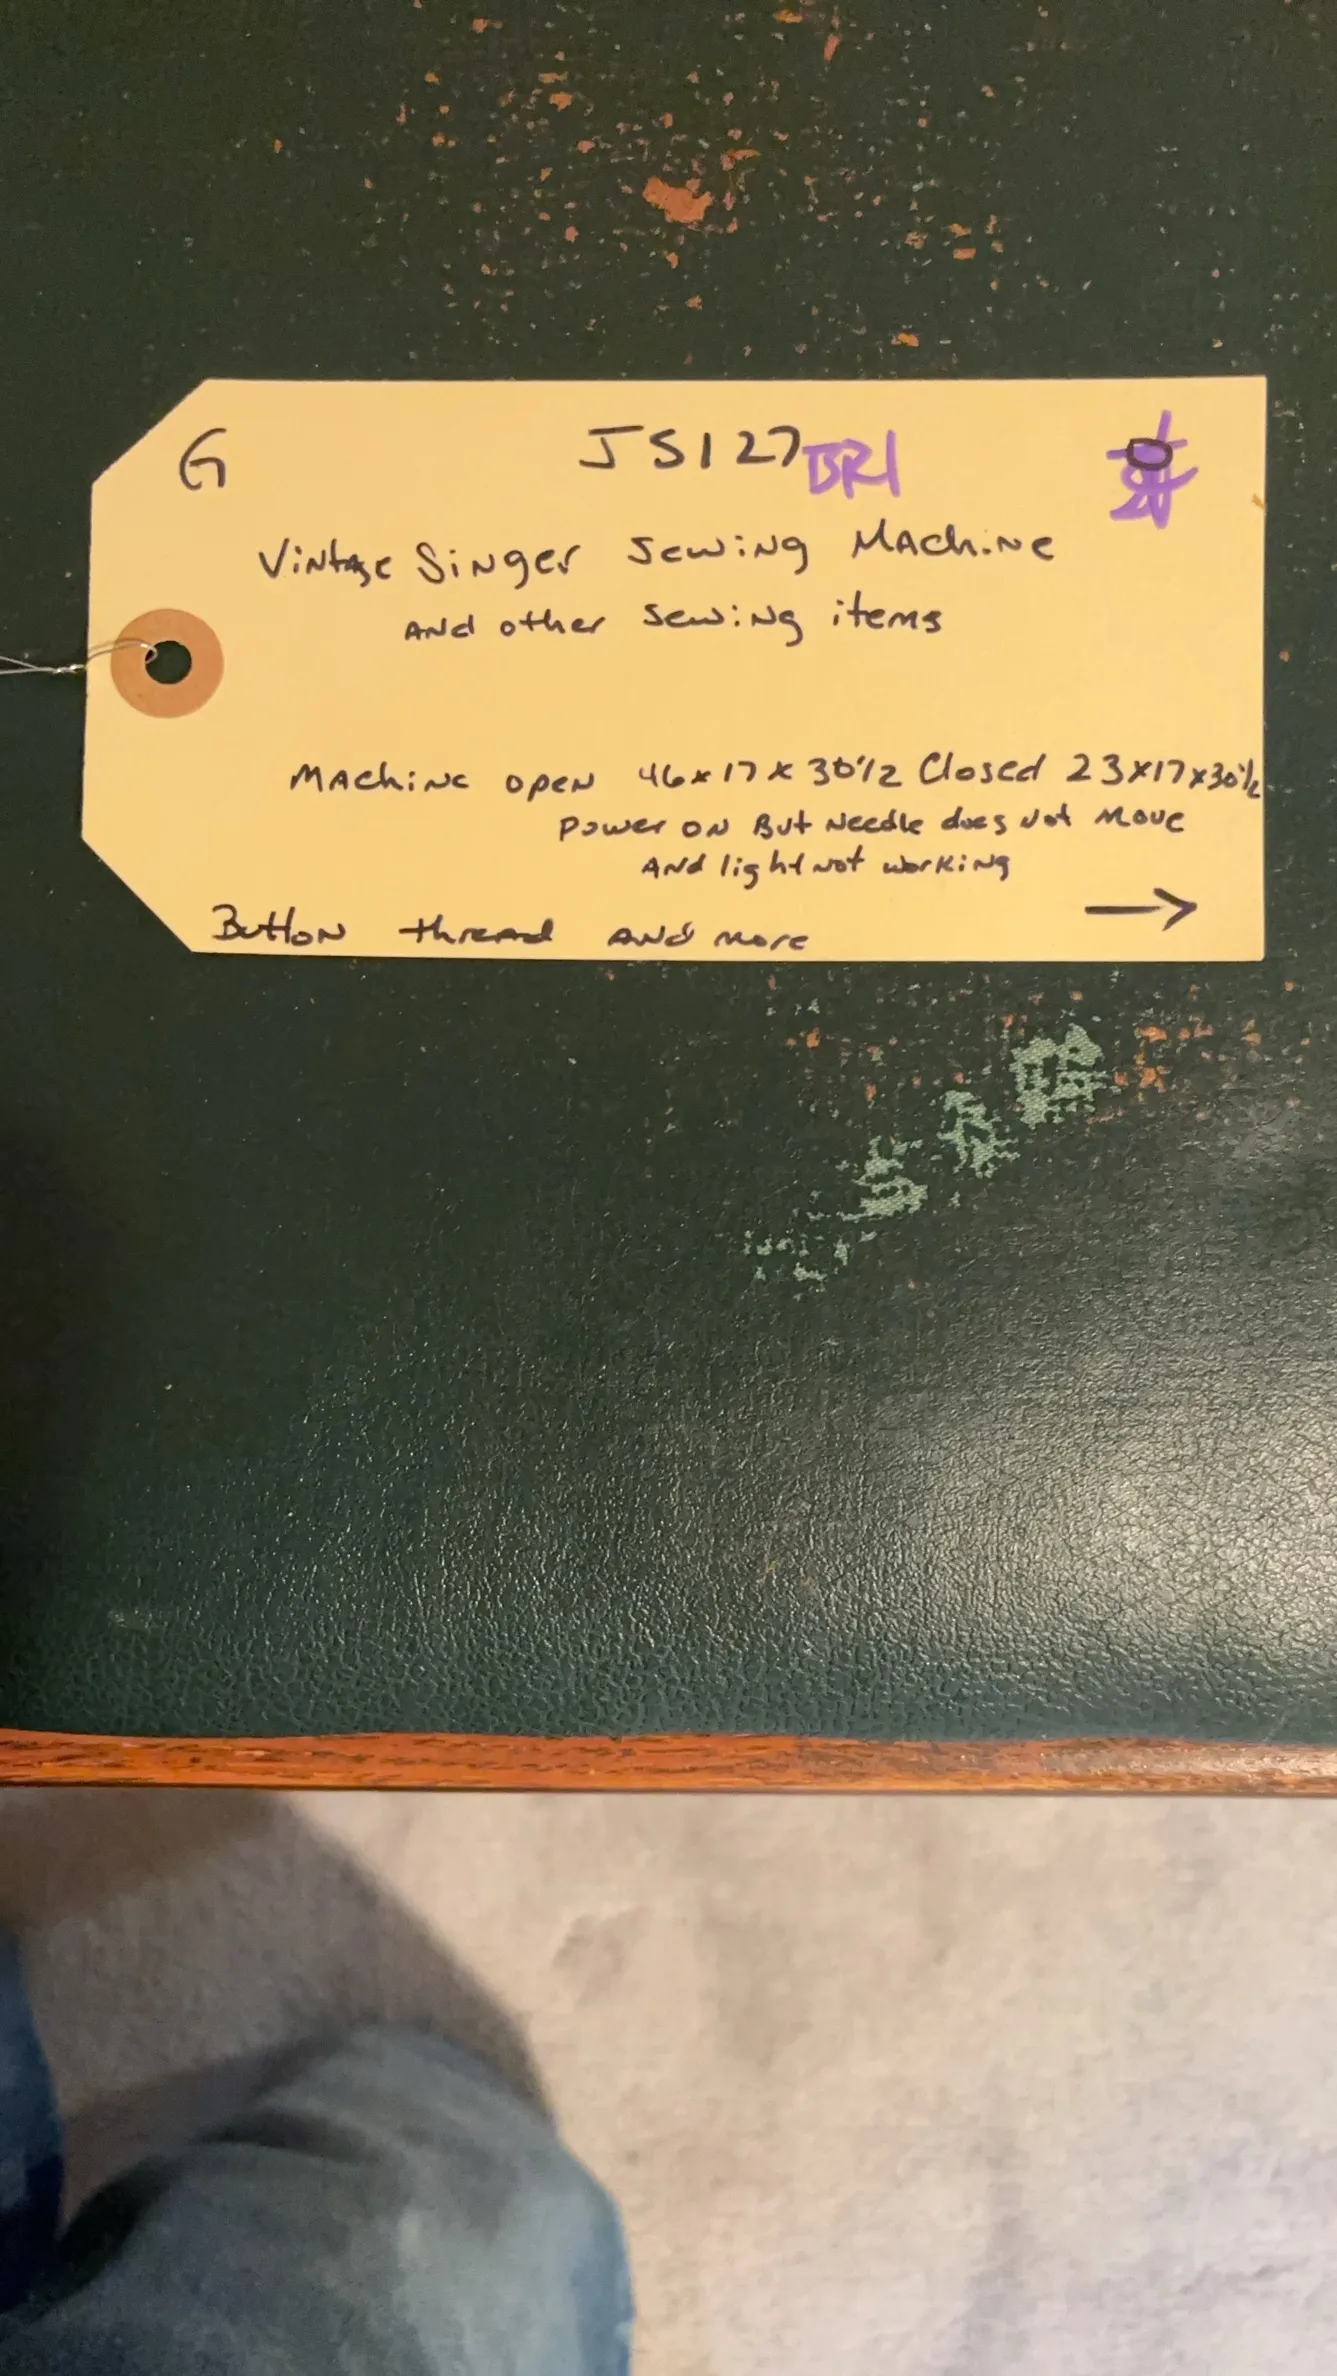 G JS127 BR1
Vintage Singer Sewing Machine
And other sewing items
Machine open 46x17x30 1/2 Closed 23x17x30 1/2
Power on But Needle does Not Move
And light not working
→
Button thread and more